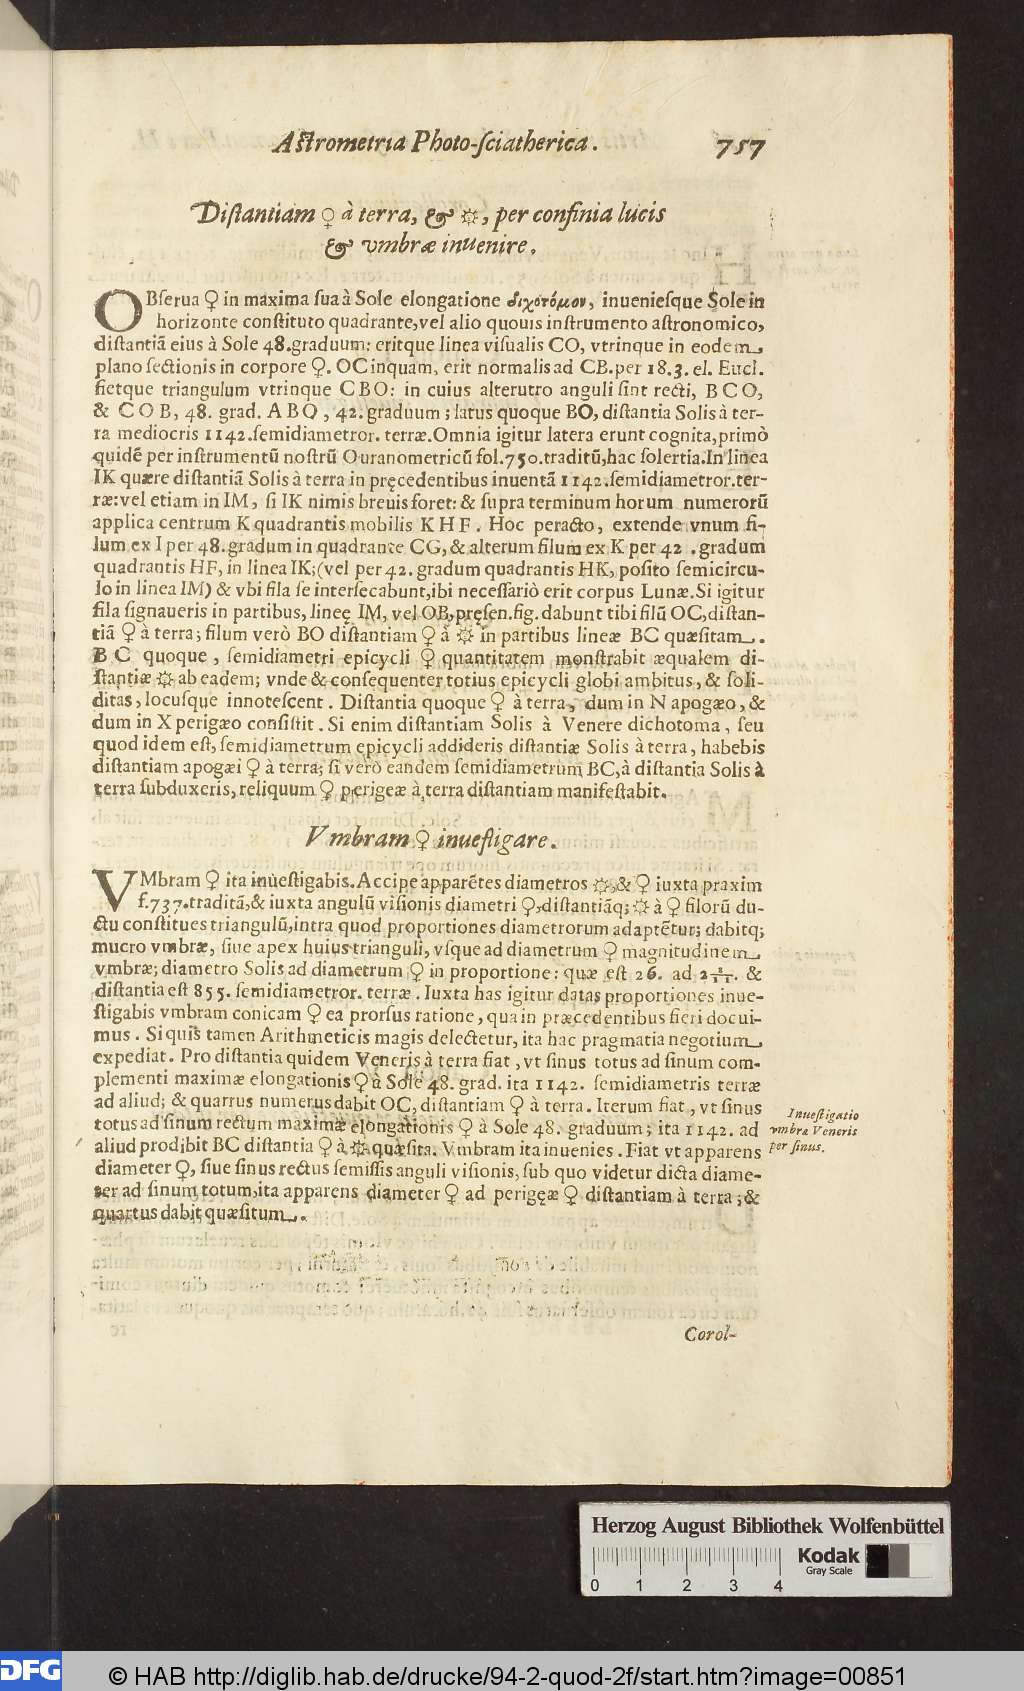 Astrometria Photo-sciatherica. 757
Distantiam ♀ à terra, & ☼, per confinia lucis
& vmbræ inuenire.
OBserua ♀ in maxima sua à Sole elongatione διχοτόμον, inueniesque Sole in
horizonte constituto quadrante, vel alio quouis instrumento astronomico,
distantiã eius à Sole 48. graduum: eritque linea visualis CO, vtrinque in eodem
plano sectionis in corpore ♀. OC inquam, erit normalis ad CB. per 18. 3. el. Eucl.
fietque triangulum vtrinque CBO: in cuius alterutro anguli sint recti, BCO,
& COB, 48. grad. ABO, 42. graduum; latus quoque BO, distantia Solis à ter-
ra mediocris 1142. semidiametror. terræ. Omnia igitur latera erunt cognita, primò
quidẽ per instrumentũ nostrũ Ouranometricũ fol. 750. traditũ, hac solertia. In linea
IK quære distantiã Solis à terra in præcedentibus inuentã 1142. semidiametror. ter-
ræ: vel etiam in IM, si IK nimis breuis foret: & supra terminum horum numerorũ
applica centrum K quadrantis mobilis KHF. Hoc peracto, extende vnum fi-
lum ex I per 48. gradum in quadrante CG, & alterum filum ex K per 42. gradum
quadrantis HF, in linea IK; (vel per 42. gradum quadrantis HK, posito semicircu-
lo in linea IM) & vbi fila se intersecabunt, ibi necessariò erit corpus Lunæ. Si igitur
fila signaueris in partibus, lineę IM, vel OB, pręsen. fig. dabunt tibi filũ OC, distan-
tiã ♀ à terra; filum verò BO distantiam ♀ à ☼ in partibus lineæ BC quæsitam.
BC quoque, semidiametri epicycli ♀ quantitatem monstrabit æqualem di-
stantiæ ☼ ab eadem; vnde & consequenter totius epicycli globi ambitus, & soli-
ditas, locusque innotescent. Distantia quoque ♀ à terra, dum in N apogæo, &
dum in X perigæo consistit. Si enim distantiam Solis à Venere dichotoma, seu
quod idem est, semidiametrum epicycli addideris distantiæ Solis à terra, habebis
distantiam apogæi ♀ à terra; si verò eandem semidiametrum BC, à distantia Solis à
terra subduxeris, reliquum ♀ perigeæ à terra distantiam manifestabit.
Vmbram ♀ inuestigare.
VMbram ♀ ita inuestigabis. Accipe apparẽtes diametros ☼, & ♀ iuxta praxim
f. 737. traditã, & iuxta angulũ visionis diametri ♀, distantiãq; ☼ à ♀ filorũ du-
ctu constitues triangulũ, intra quod proportiones diametrorum adaptẽtur; dabitq;
mucro vmbræ, siue apex huius trianguli, vsque ad diametrum ♀ magnitudinem
vmbræ; diametro Solis ad diametrum ♀ in proportione: quæ est 26. ad 2 2/11. &
distantia est 855. semidiametror. terræ. Iuxta has igitur datas proportiones inue-
stigabis vmbram conicam ♀ ea prorsus ratione, qua in præcedentibus fieri docui-
mus. Si quis tamen Arithmeticis magis delectetur, ita hac pragmatia negotium
expediat. Pro distantia quidem Veneris à terra fiat, vt sinus totus ad sinum com-
plementi maximæ elongationis ♀ à Sole 48. grad. ita 1142. semidiametris terræ
ad aliud; & quartus numerus dabit OC, distantiam ♀ à terra. Iterum fiat, vt sinus
totus ad sinum rectum maximæ elongationis ♀ à Sole 48. graduum; ita 1142. ad
aliud prodibit BC distantia ♀ à ☼ quæsita. Vmbram ita inuenies. Fiat vt apparens
diameter ♀, siue sinus rectus semissis anguli visionis, sub quo videtur dicta diame-
ter ad sinum totum, ita apparens diameter ♀ ad perigęæ ♀ distantiam à terra; &
quartus dabit quæsitum.
Inuestigatio
vmbræ Veneris
per sinus.
Corol-
Herzog August Bibliothek Wolfenbüttel
Kodak
Gray Scale
0 1 2 3 4
DFG
© HAB http://diglib.hab.de/drucke/94-2-quod-2f/start.htm?image=00851